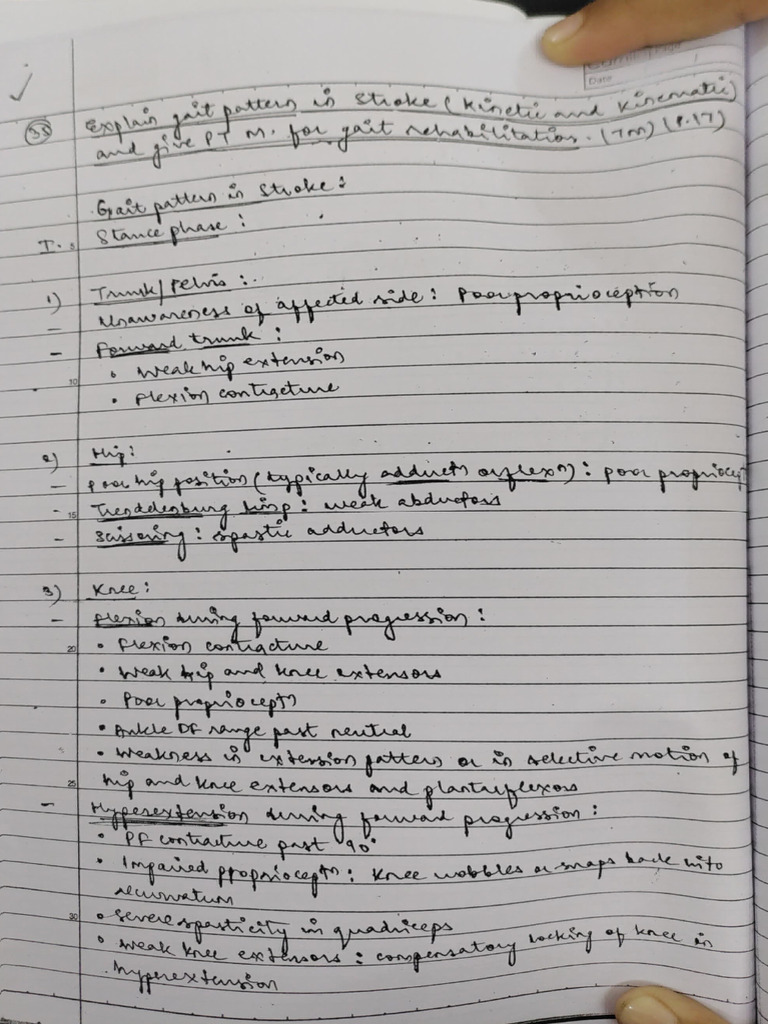 Date
35 Explain gait pattern in Stroke (Kinetic and Kinematic)
and give PT M. for gait rehabilitation. (7m) (P.17)
Gait pattern in Stroke:
I. Stance phase:
1) Trunk/Pelvis:
- Unawareness of affected side: Poor proprioception
- Forward trunk:
• Weak hip extension
10 • Flexion contracture
2) Hip:
- Poor hip position (typically adductn or flexn): poor propriocept
15 - Trendelenburg limp: weak abductors
- Scissoring: spastic adductors
3) Knee:
- Flexion during forward progression:
20 • Flexion contracture
• Weak hip and knee extensors
• Poor proprioceptn
• Ankle DF range past neutral
• Weakness in extension pattern or in selective motion of
25 hip and knee extensors and plantarflexors
- Hyperextension during forward progression:
• PF contracture past 90°
• Impaired proprioceptn: Knee wobbles or snaps back into
recurvatum
30 • Severe spasticity in quadriceps
• Weak knee extensors: compensatory locking of knee in
hyperextension